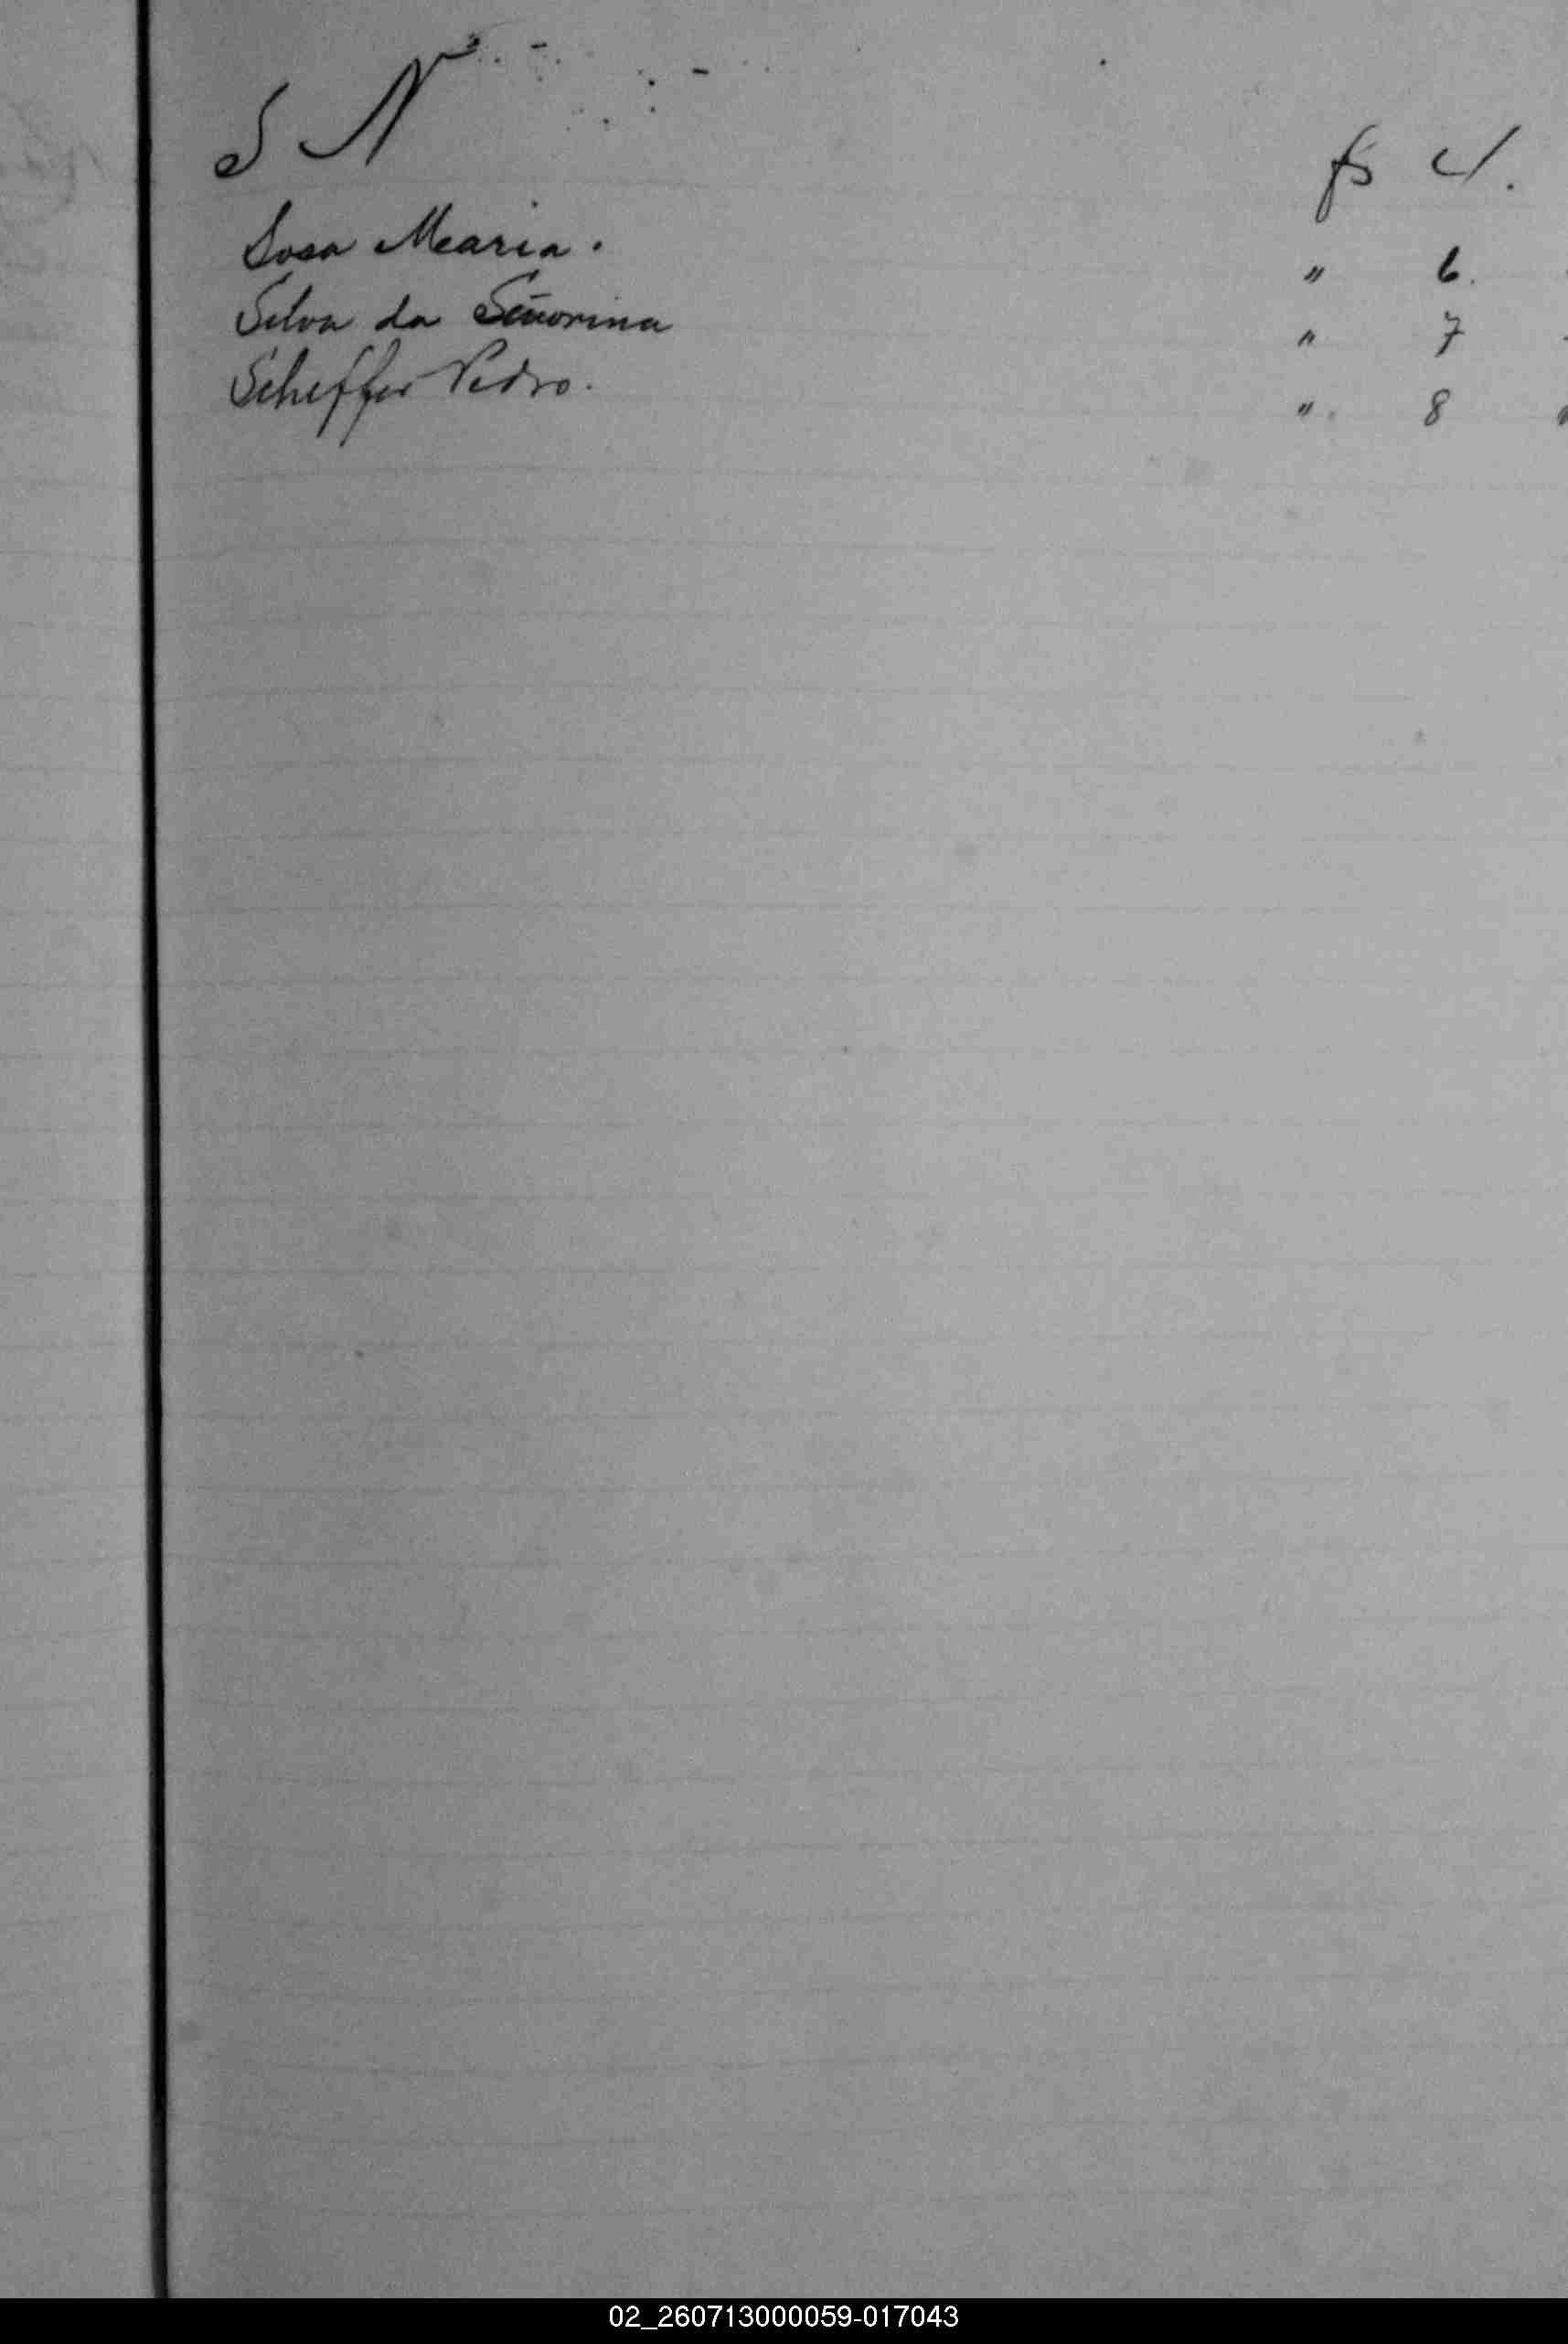 S N fs 4.
Sosa Maria. " 6.
Silva da Señorina " 7
Scheffer Pedro. " 8
02_260713000059-017043